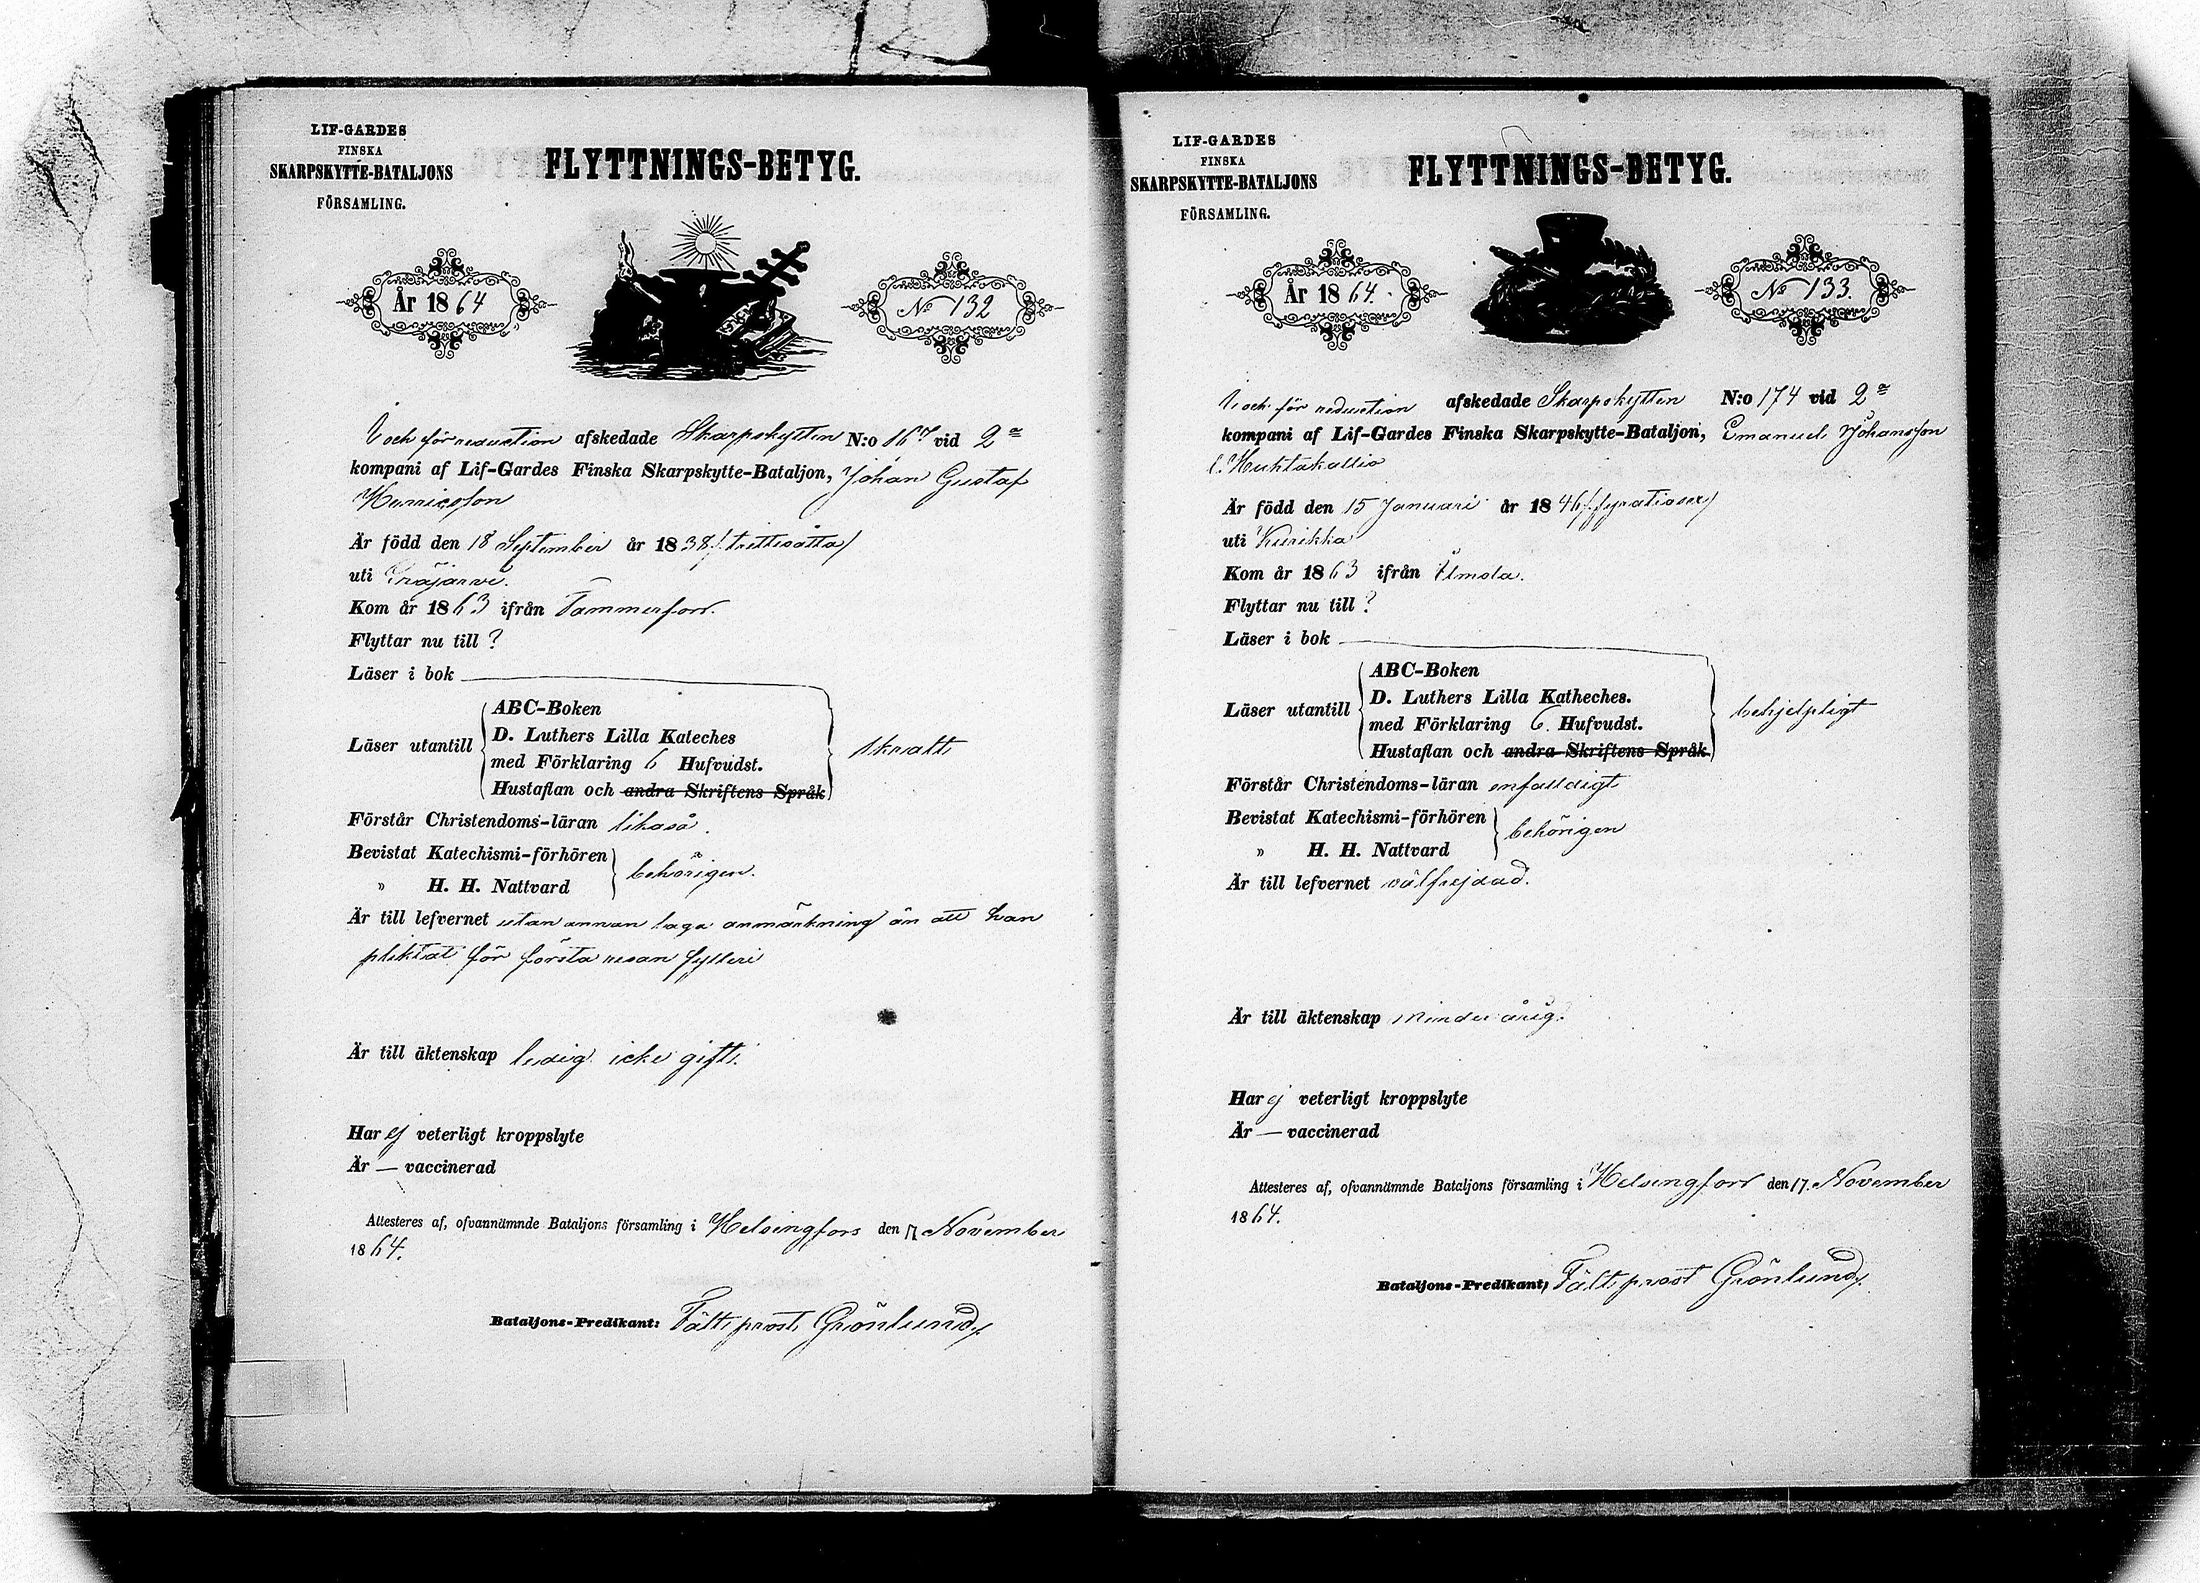 LIF-GARDES
FINSKA
SKARPSKYTTE-BATALJONS
FÖRSAMLING.
FLYTTNINGS-BETYG.
År 1864
No 132
I och för reduction afskedade Skarpskytten N:o 167 vid 2a
kompani af Lif-Gardes Finska Skarpskytte-Bataljon, Johan Gustaf
Henricsson
Är född den 18 September år 1838 /:trettioåtta/
uti Gräjärvi.
Kom år 1863 ifrån Tammerfors.
Flyttar nu till ?
Läser i bok
Läser utantill
ABC-Boken
D. Luthers Lilla Kateches
med Förklaring 6 Hufvudst.
Hustaflan och andra Skriftens Språk
skralt
Förstår Christendoms-läran likaså.
Bevistat Katechismi-förhören
" H. H. Nattvard
behörigen.
Är till lefvernet utan annan laga anmärkning än att han
pliktat för första resan fylleri
Är till äktenskap ledig icke gift.
Har ej veterligt kroppslyte
Är — vaccinerad
Attesteres af, ofvannämnde Bataljons församling i Helsingfors den 17 November
1864.
Bataljons-Predikant: Fältprost Grönlund
LIF-GARDES
FINSKA
SKARPSKYTTE-BATALJONS
FÖRSAMLING.
FLYTTNINGS-BETYG.
År 1864.
No 133.
I och för reduction afskedade Skarpskytten N:o 174 vid 2a
kompani af Lif-Gardes Finska Skarpskytte-Bataljon, Emanuel Johansson
l. Huhtakallio
Är född den 15 Januari år 1846 /:fyratiosex/
uti Kurikka
Kom år 1863 ifrån Ilmola.
Flyttar nu till ?
Läser i bok
Läser utantill
ABC-Boken
D. Luthers Lilla Katheches.
med Förklaring 6. Hufvudst.
Hustaflan och andra Skriftens Språk
behjelpligt
Förstår Christendoms-läran enfaldigt
Bevistat Katechismi-förhören
" H. H. Nattvard
behörigen
Är till lefvernet välfrejdad.
Är till äktenskap minderårig.
Har ej veterligt kroppslyte
Är — vaccinerad
Attesteres af, ofvannämnde Bataljons församling i Helsingfors den 17. November
1864.
Bataljons-Predikant, Fältprost Grönlund